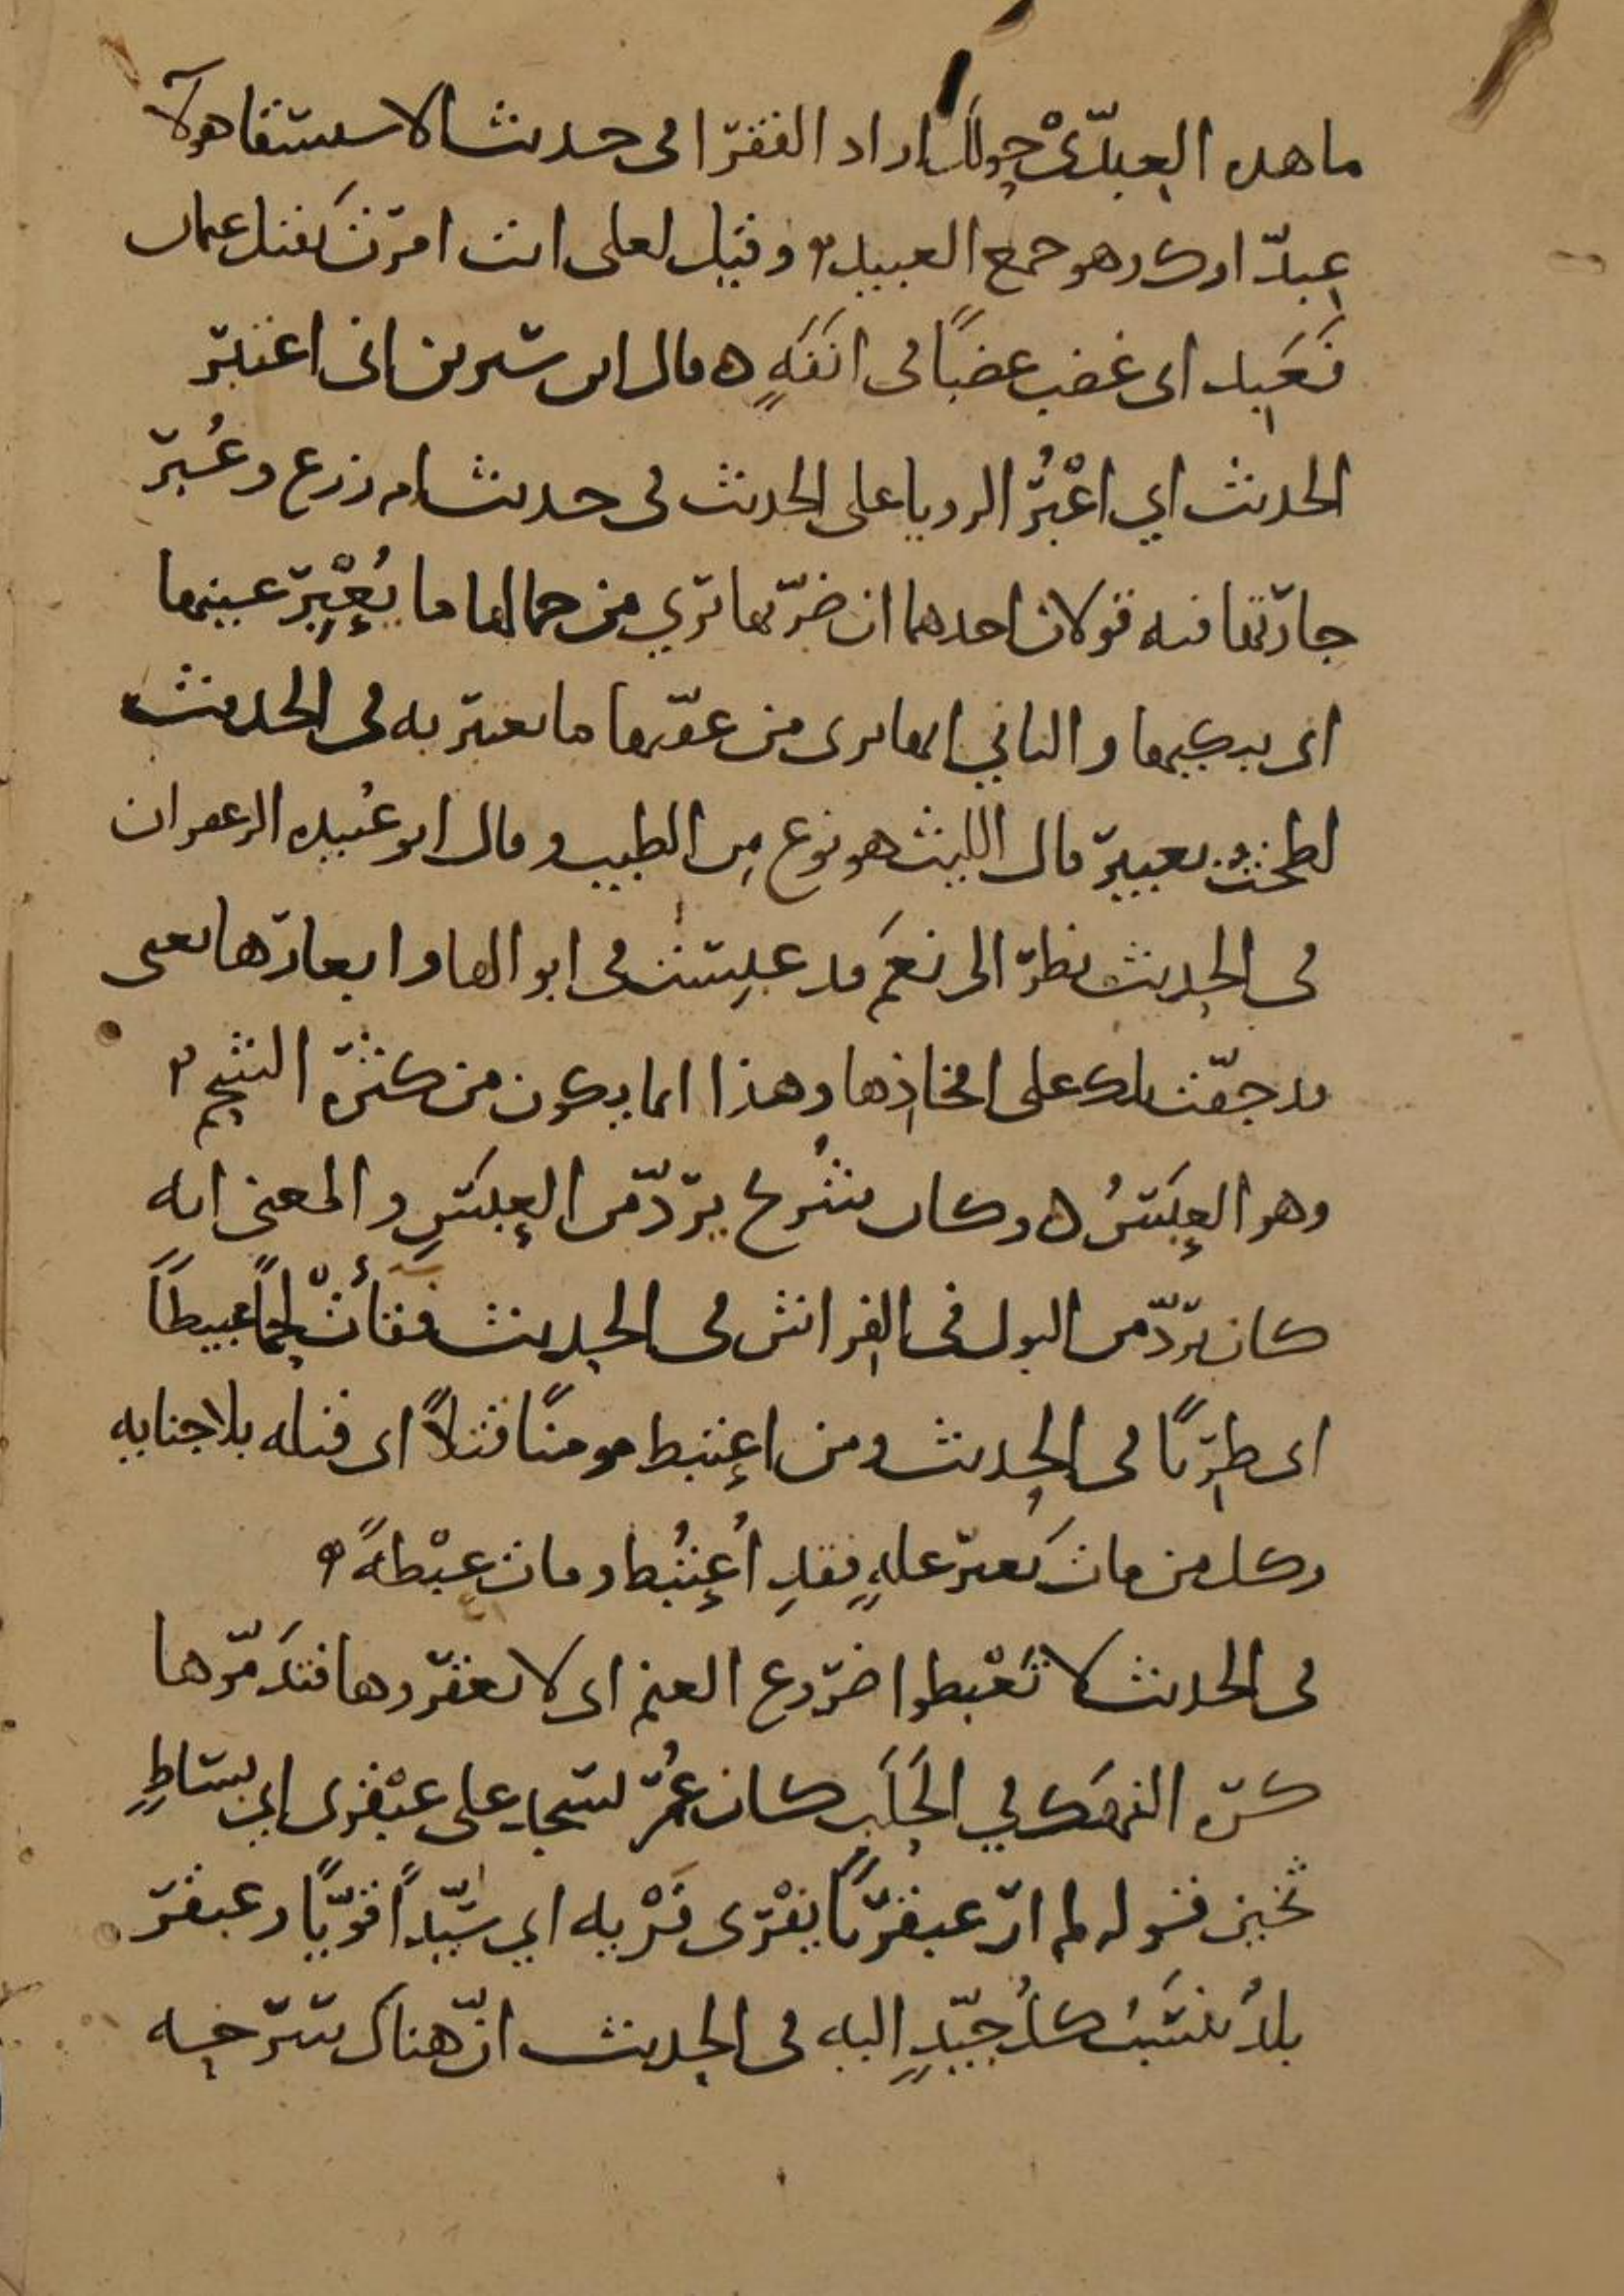 ما هذه العِبِدَّى حولك اراد الفقرا فى حديث الاستسقا هولآ
عِبِدَّاوك وهو جمع العبيد وقيل لعلى انت امرت بقتل عثمان
فَعَبِد اى غضب غضبًا فى انَفَهٍ ٥ قال ابن سيرين انى اعتبر
الحديث اي اعْبُرُ الرويا على الحديث فى حديث ام زرع وعُبْرُ
جارتها فيه قولان احدهما ان ضرّتها تري من جمالها ما يُعْبِرُ عينها
اى يبكيها والثاني انها ترى من عفّتها ما تعتبر به فى الحديث
لطخت بعبير قال الليث هو نوع مِن الطيب وقال ابو عُبيده الزعفران
فى الحديث نظر الى نعَم قد عبِست فى ابوالها وابعارها يعنى
قد جفّت تلك على افخاذها وهذا انما يكون من كثره الشحم
وهو العبَسُ ٥ وكان شُريح يردّ من العبَسِ والمعنى انه
كان يردّ من البول فى الفراش فى الحديث فقأتْ لحمًا عبيطًا
اى طريًا فى الحديث ومن اعتبط مومنًا قتلًا اى قتله بلا جنايه
وكل من مات بَغير علهٍ فقدِ اُعتُبط ومات عبْطهً
فى الحديث لا تَعْبطوا ضروع الغنم اى لا تعقروها فتدَمّوها
كره النهك في الحَلَب كان عُمر يسجد على عبْقرى اي بساطٍ
ثخين قوله لم ار عبقريًا يفْرى فَرْيه اي سيّدًا قويًّا وعبقر
بلدُ يُنسَبُ كلُ جيّدٍ اليه فى الحديث انّ هناك سرحه